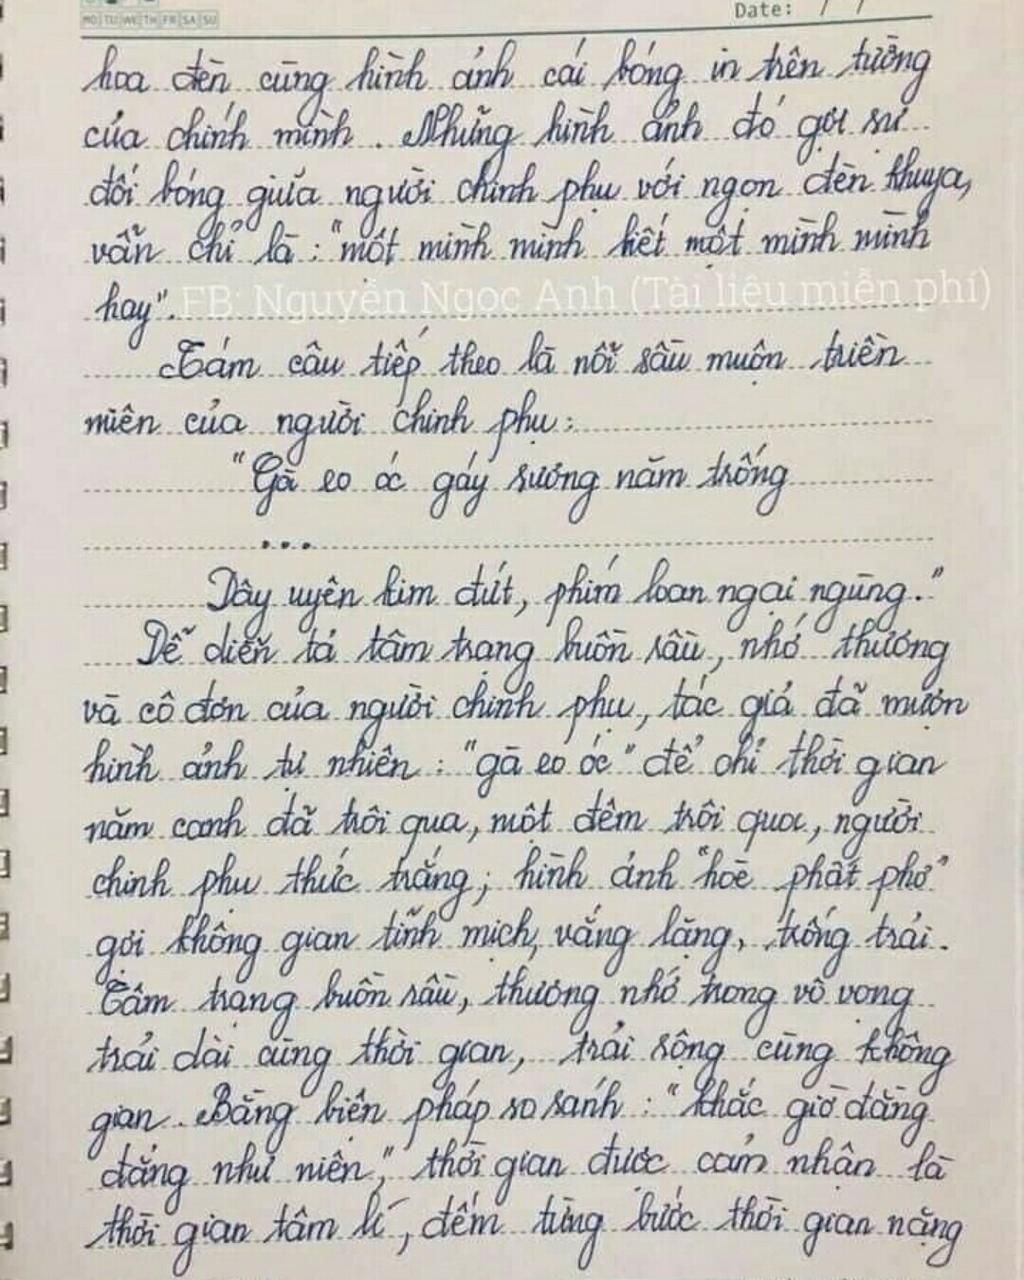 MO TU WE TH FR SA SU
Date: / /
hoa đèn cùng hình ảnh cái bóng in trên tường
của chính mình. Những hình ảnh đó gợi sự
đối bóng giữa người chinh phụ với ngọn đèn khuya,
vẫn chỉ là: "một mình mình biết một mình mình
hay".
FB: Nguyễn Ngọc Anh (Tài liệu miễn phí)
Tám câu tiếp theo là nỗi sầu muộn triền
miên của người chinh phụ:
"Gà eo óc gáy sương năm trống
...
Dây uyên kim đứt, phím loan ngại ngùng."
Để diễn tả tâm trạng buồn sầu, nhớ thương
và cô đơn của người chinh phụ, tác giả đã mượn
hình ảnh tự nhiên: "gà eo óc" để chỉ thời gian
năm canh đã trôi qua, một đêm trôi qua, người
chinh phụ thức trắng; hình ảnh "hòe phất phơ"
gợi không gian tĩnh mịch, vắng lặng, trống trải.
Tâm trạng buồn sầu, thương nhớ trong vô vọng
trải dài cùng thời gian, trải rộng cùng không
gian. Bằng biện pháp so sánh: "khắc giờ đằng
đẵng như niên", thời gian được cảm nhận là
thời gian tâm lí, đếm từng bước thời gian nặng